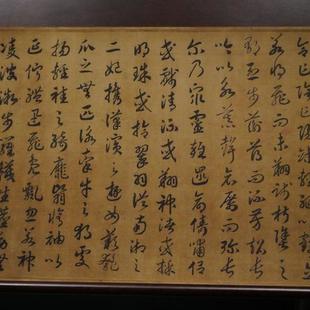 合乍陰乍陽竦輕軀以鶴立
若將飛而未翔踐椒塗之
郁烈步蘅薄而流芳超長
吟以永慕聲哀厲而彌長
爾乃眾靈雜遝命儔嘯侶
或戲清流或翔神渚或採
明珠或拾翠羽從南湘之
二妃攜漢濱之遊女歎匏
瓜之無匹詠牽牛之獨處
揚輕袿之猗靡翳修袖以
延佇體迅飛鳧飄忽若神
凌波微步羅襪生塵動無